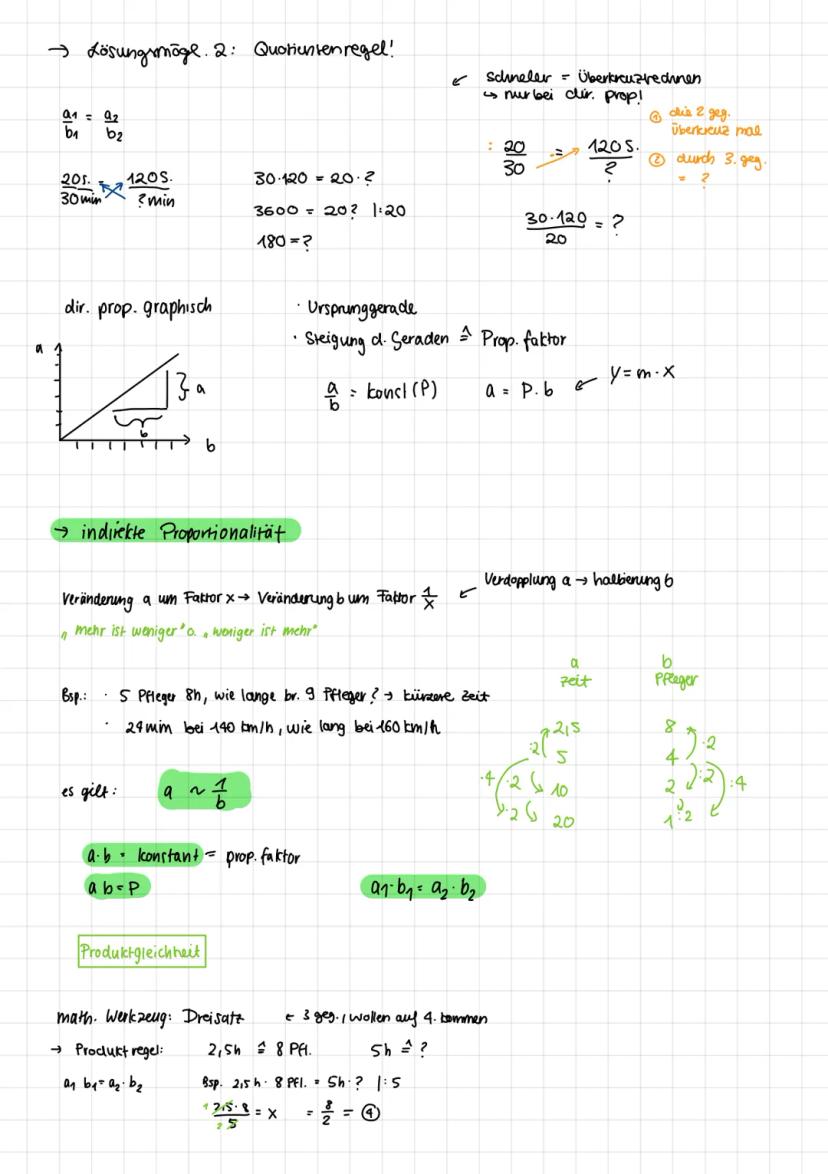 → Lösungsmögl. 2: Quotientenregel!
↙ schneller = Überkreuzrechnen
↳ nur bei dir. prop!
a1/b1 = a2/b2
: 20/30 = 120 S./?
① die 2 geg. überkreuz mal
② durch 3. geg. = ?
20 S./30 min = 120 S./? min
30·120 = 20·?
3600 = 20? |:20
180 = ?
30·120/20 = ?
dir. prop. graphisch
· Ursprunggerade
· Steigung d. Geraden ≙ Prop. faktor
a
} a
b
b
a/b = konst (P)
a = P·b ↙ y = m·x
→ indirekte Proportionalität
Veränderung a um Faktor x → Veränderung b um Faktor 1/x ↙ Verdopplung a → halbierung b
„mehr ist weniger" o. „weniger ist mehr"
a b
Zeit Pfleger
Bsp.: · 5 Pfleger 8h, wie lange br. 9 Pfleger? → kürzere Zeit
· 24 min bei 140 km/h, wie lang bei 160 km/h
2,5 8
:2 5 4 ·2
·4 ·2 10 2 :2 :4
·2 20 1 :2
es gilt: a ~ 1/b
a·b = konstant = prop. faktor
a b = P
a1·b1 = a2·b2
Produktgleichheit
math. Werkzeug: Dreisatz ← 3 geg., wollen auf 4. kommen
→ Produktregel: 2,5h ≙ 8 Pfl. 5h ≙ ?
a1 b1 = a2·b2 Bsp. 2,5h · 8 Pfl. = 5h · ? |:5
1 2,5·8/2 5 = x = 8/2 = ④